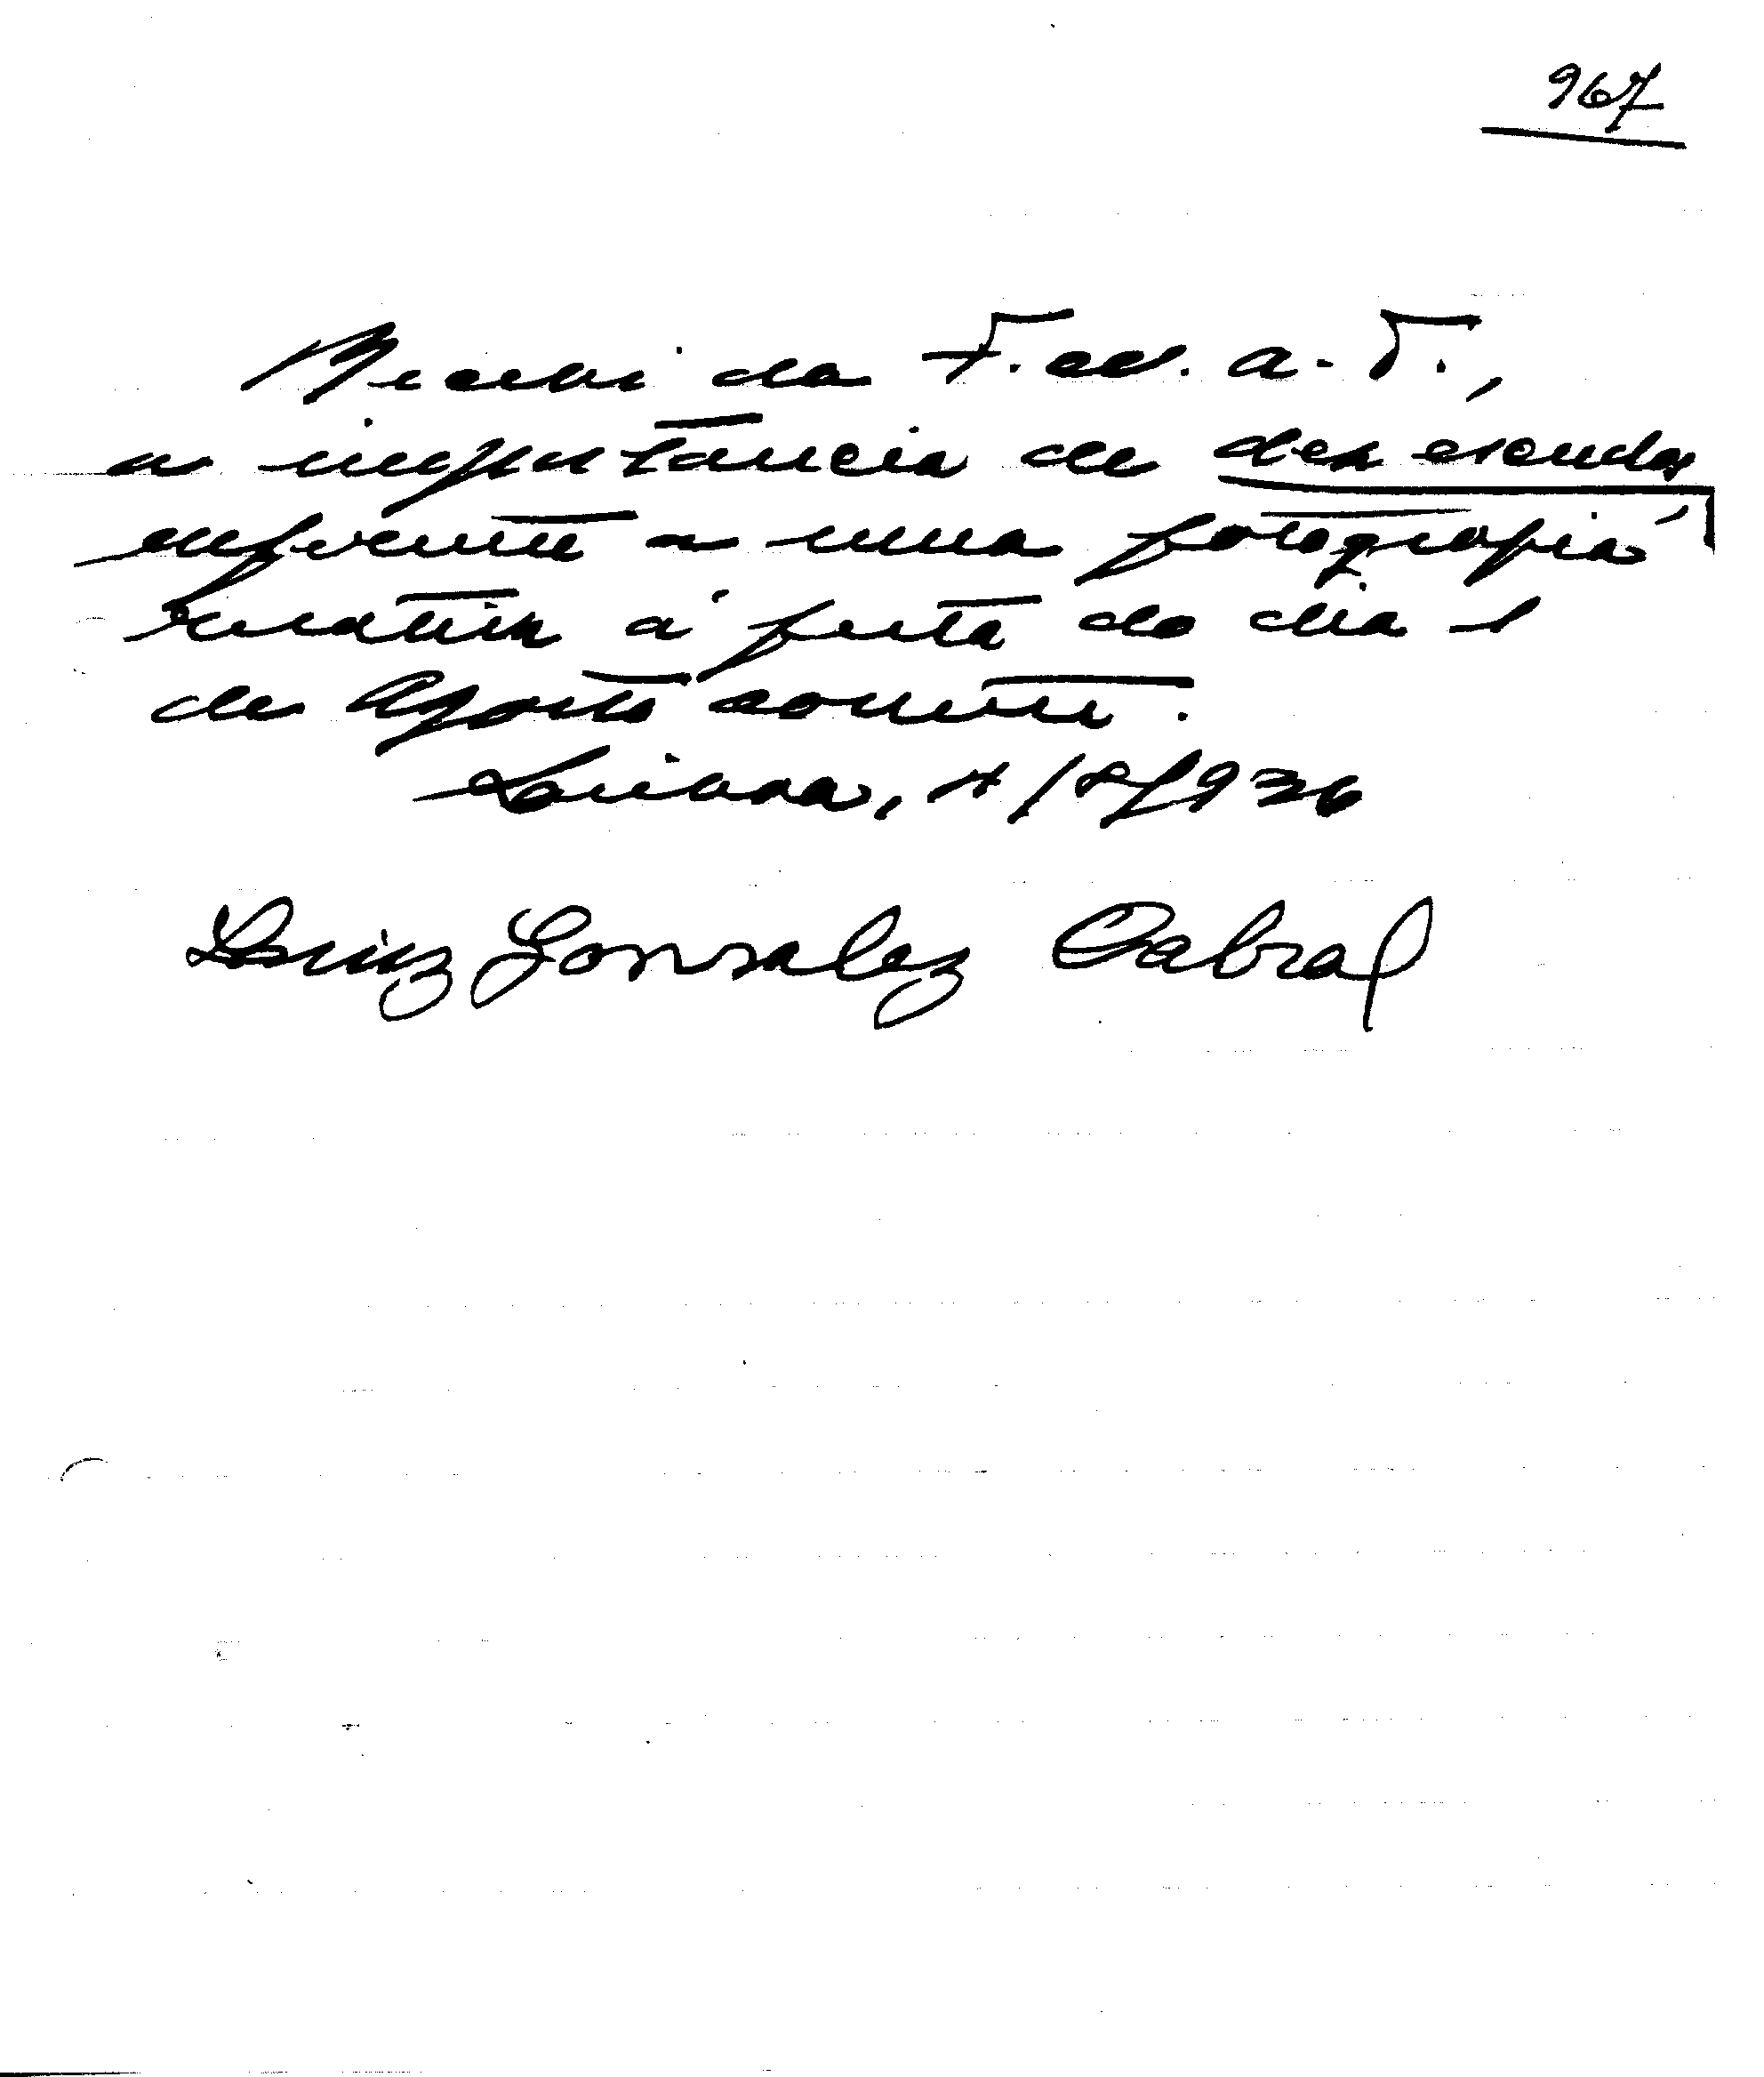 967
Recebi da F. N. A. T.,
a importancia de dez escudos,
referente a uma fotografia
relativa á festa do dia 1
de Agosto corrente.
Lisboa, 4/8/936
Luiz Gonzalez Cabral